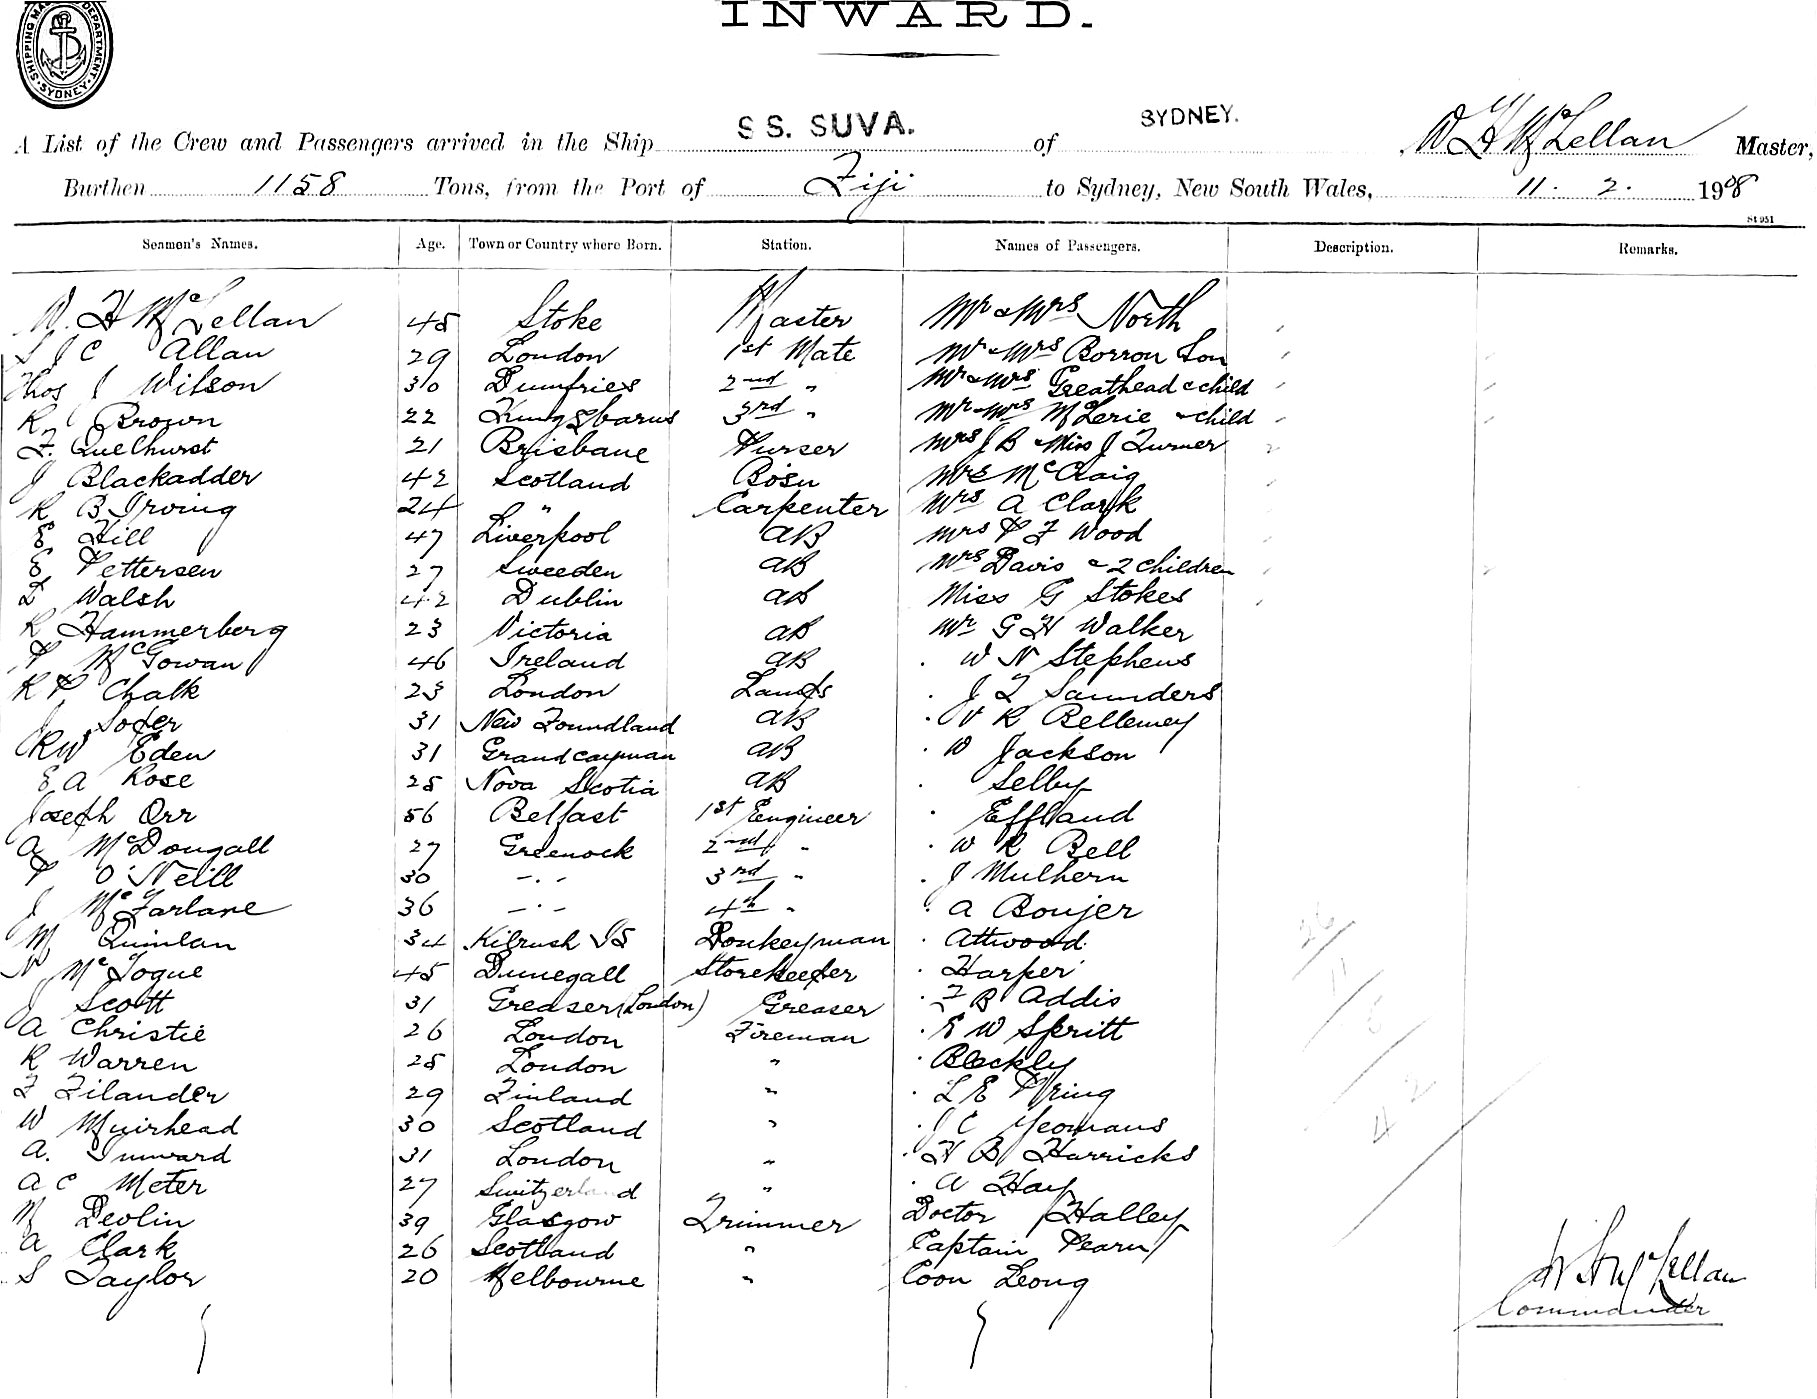 SHIPPING MA DEPARTMENT SYDNEY
INWARD.
A List of the Crew and Passengers arrived in the Ship SS. SUVA. of SYDNEY. W H McLellan Master,
Burthen 1158 Tons, from the Port of Fiji to Sydney, New South Wales, 11. 2. 1908
St 951
Seamen's Names. Age. Town or Country where Born. Station. Names of Passengers. Description. Remarks.
W. H McLellan 45 Stoke Master Mr & Mrs North
S J C Allan 29 London 1st Mate Mr & Mrs Borron Son
Thos J Wilson 30 Dumfries 2nd " Mr & Mrs Greathead & child
R Brown 22 3rd " Mr & Mrs McLerie & child
F. Quelhurst 21 Brisbane Purser Mrs J B & Miss J Turner
J Blackadder 42 Scotland Bosn Mrs McCraig
R B Irving 24 " Carpenter Mrs A Clark
E Hill 47 Liverpool AB Mrs P F Wood
E Pettersen 27 Sweeden AB Mrs Davis & 2 children
Walsh 42 Dublin AB Miss G Stokes
R Hammerberg 23 Victoria AB Mr G H Walker
P McGowan 46 Ireland AB W N Stephens
R P Chalk 23 London Lamps J T Saunders
J Soper 31 New Foundland AB V R Bellemey
RW Eden 31 Grandcayman AB W Jackson
E A Rose 25 Nova Scotia AB Selby
Joseph Orr 56 Belfast 1st Engineer Effland
A McDougall 27 Greenock 2nd " W R Bell
P O'Neill 30 -.- 3rd " J Mulhern
J McFarlane 36 -.- 4th " A Boujer
M Quinlan 34 Kilrush IS Donkeyman Attwood
N McTogue 45 Dunegall Storekeeper Harper
J Scott 31 Greaser (London) Greaser F B Addis
A Christie 26 London Fireman E W Spritt
R Warren 25 London " Bleckly
F Filander 29 Finland " L E Pring
W Muirhead 30 Scotland " J C Yeomans
A. Inward 31 London " H B Harricks
A C Meter 27 Switzerland " A Hay
M Devlin 39 Glasgow Trimmer Doctor Halley
A Clark 26 Scotland " Captain Pearn
S Taylor 20 Melbourne " Coon Leong
W H McLellan
Commander